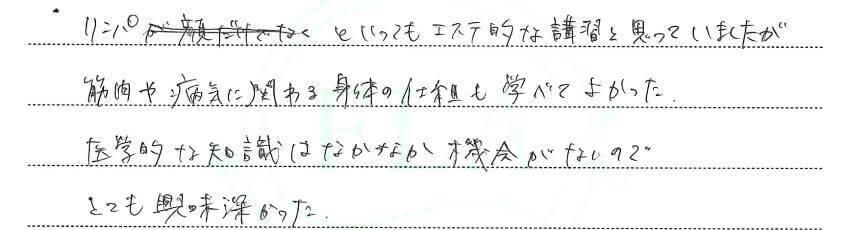 ・リンパ が顔だけでなく といってもエステ的な講習と思っていましたが
筋肉や病気に関わる身体の仕組も学べてよかった.
医学的な知識はなかなか機会がないので
とても興味深かった.